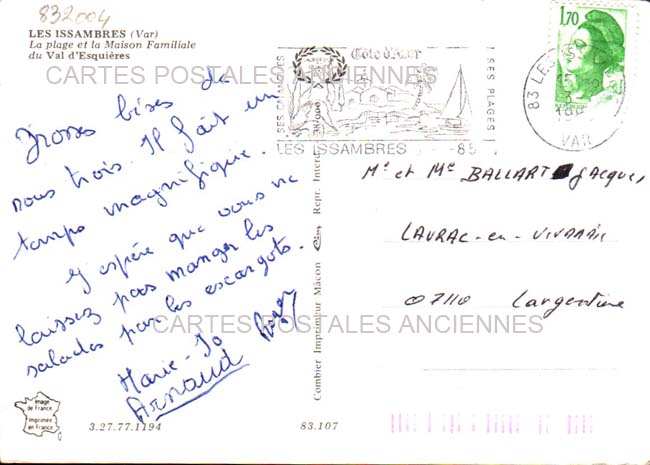 832004
LES ISSAMBRES (Var)
La plage et la Maison Familiale
du Val d'Esquières
CARTES POSTALES ANCIENNES
Grosses bises de
nous trois. Il fait un
temps magnifique.
J'espère que vous ne
laissez pas manger les
salades par les escargots.
Marie-Jo
Arnaud Roger
Image
de France
Imprimée
en France
3.27.77.1194
83.107
Combier Imprimeur Mâcon
Repr. Interd.
SES CALANQUES
Côte d'Azur
SES PLAGES
LES ISSAMBRES - 85
1,70
83 LES
VAR
Mr et Me BALLART Jacques
LAURAC-en-VIVARAIS
07110 Largentière
CARTES POSTALES ANCIENNES